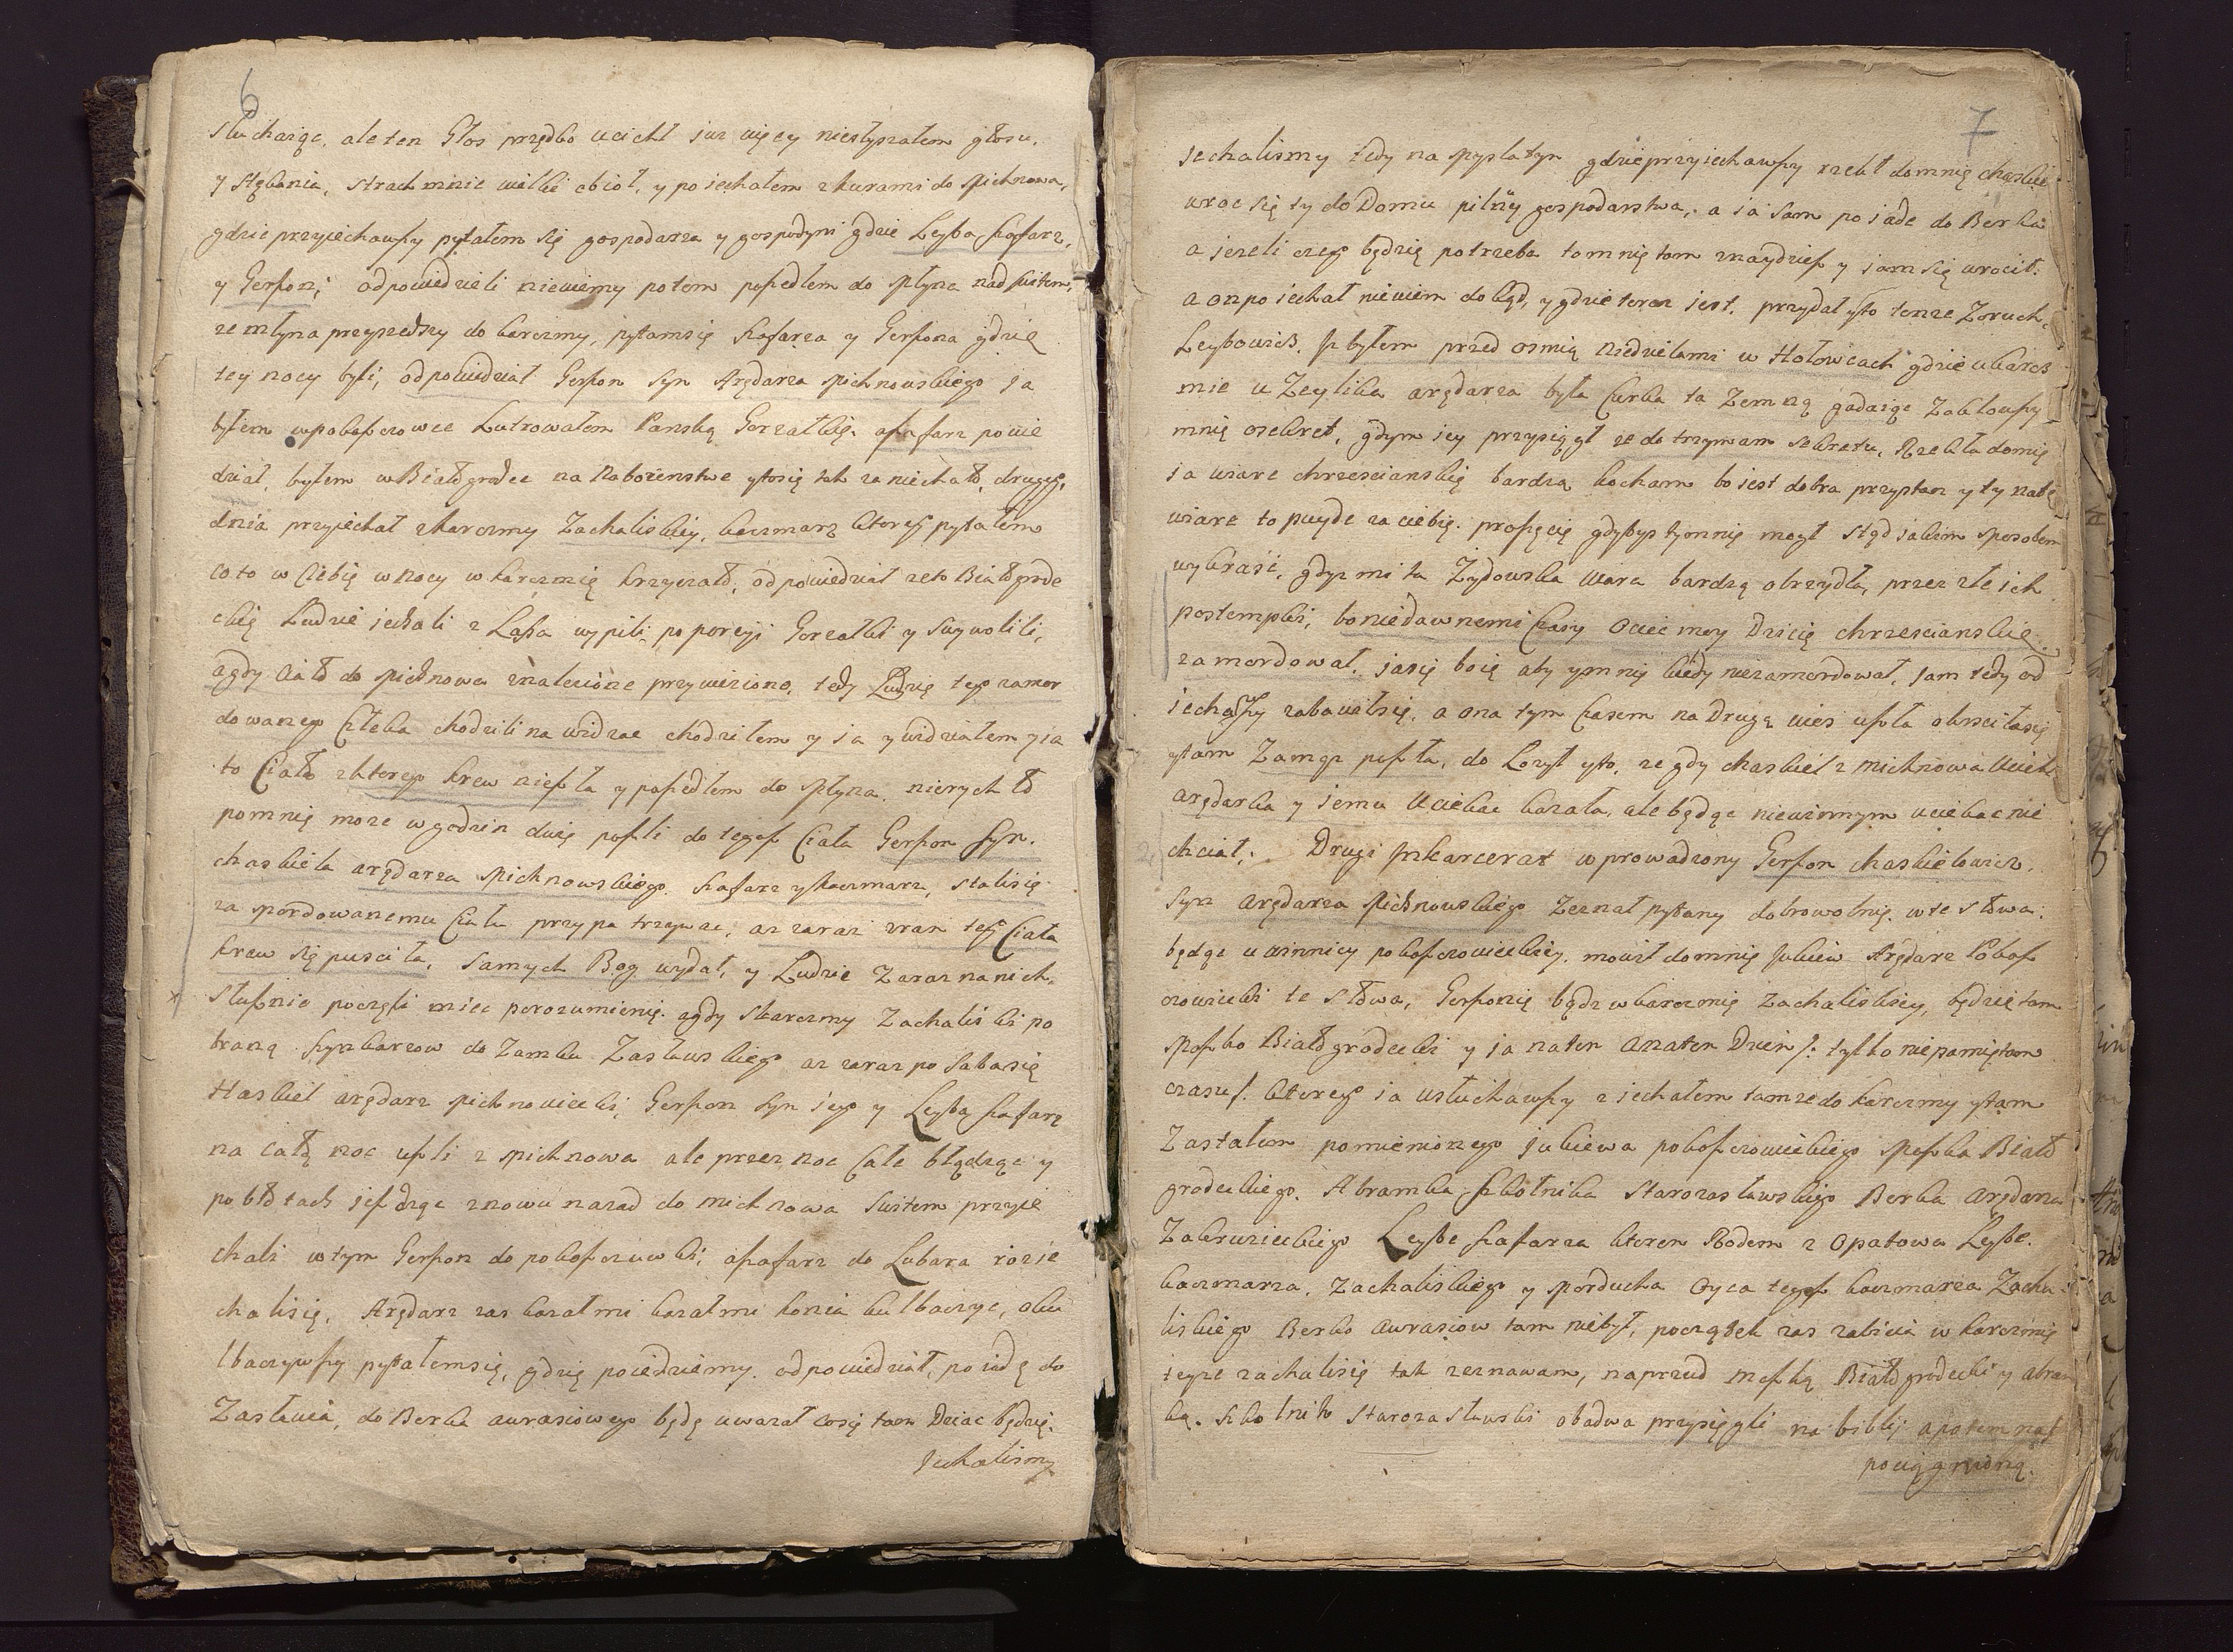 6
słuchaiąc, ale ten Głos prędko ucichł iuz więcy niesłyszałem głosu,
y stękania, strach mnie wielki obioł, y poiechałem z kurami do Michnowa,
gdzie przyiechawszy pytałem się gospodarza y gospodyni gdzie Leyba szafarz,
y Gerszon; odpowiedzieli niewiemy potem poszedłem do młyna nad switem,
ze młyna przyszedszy do karczmy, pytamsię szafarza y Gerszona gdzie
tey nocy byli, odpowiedział Gerszon syn Arędarza Michnowskiego ja
byłem w pokoszczowce Lutrowałem Panską Gorzałkę. a szafarz powie
dział, byłem w Białogrodce na Nabożenstwe y to się tak zaniechało, drugieg
dnia przyiechał z karczmy Zachaliskiey, kaczmarz ktoreg pytałem
co to w Ciebię w nocy w karczmię krzyczało, odpowiedział ze to Białogrode
ckię Ludzie iechali z Lasa wypili po porcyi Gorzałki y swywolili,
a gdy ciało do Michnowa znalezione przywieziono, tedy Ludzię tego zamor
dowanego Człeka chodzili na widzac chodziłem y ia y widziałem y ia
to Ciało z ktorego krew nieszła y poszedłem do młyna. nierychło
pomnię moze w godzin dwię poszli do tegosz Ciała Gerszon syn.
chaskiela arędarza Michnowskiego. szafarz y kaczmarz, stalisię
zamordowanemu Ciału przypatrzywac, az zaraz zran teg Ciała
krew się pusciła, samych Bog wydał, y Ludzie Zaraz na nich
słusznie poczęli miec porozumienię. a gdy z karczmy Zachaliski po
braną szynkarzow do Zamku Zasławskiego az zaraz po sabasię
Haskiel arędarz Michnowiecki, Gerszon syn iego y Leyba szafarz
na całą noc uszli z Michnowa ale przez noc Całe błądząc y
po błotach jezdząc znowu nazad do michnowa switem przyie
chali w tym Gerszon do pokoszczowki, a szafarz do Lubara rozie
chalisię. Arędarz zas kazał mi kazał mi konia kulbaczyc, oku
lbaczywszy pytałemsię, gdzię poiedziemy. odpowiedział, poiadę do
Zasławia, do Berka awrasiowego będę uwazał cosię tam Dziac będzię.
Jechalismy
7
jechalismy tedy na spyszlatyn gdzie przyiechawszy rzekł do mnię chaskiel
wroc się ty do Domu pilnuy gospodarstwa, a ia sam poiade do Berka
a jezeli czego będzię potrzeba to mnię tam znaydziesz y jam się wrocił.
a on poiechał niewiem dokąd, y gdzie teraz jest. przydał y to tenze Zoruch
Leybowicz. Iz byłem przed osmią niedzielami w Hołowcach gdzie w karcz
mie u Zeylika arędarza była Curka ta Zemną gadaiąc Zaklowszy
mnię o sekret, gdym iey przysiągł ze dotrzymam sekretu, Rzekła do mię
ia wiare chrzescianskię bardzą kocham bo iest dobra przystan y ty na tę
wiare to puyde za ciebię. proszęcię gdybys ty mnię mogł stąd iakiem sposobem
wykraść, gdyz mi ta Żydowska wiara bardzą obrzydła, przez złe ich
postempki, bo niedawnemi Czasy Ociec moy Dzicię chrzescianskię
zamordował, ja się boię aby y mnię kiedy niezamordował. jam tedy od
iechawszy zabawiłsię, a ona tym Czasem na Drugą wies uszła okrsciłasię
y tam Zamąz poszła, do Łozył y to, ze gdy chaskiel z michnowa Uciekł
arędarka y jemu Uciekac kazała, ale będąc niewinnym uciekac nie
chciał; Drugi Inkarcerat wprowadzony Gerszon chaskielowicz.
syn arędarza Michnowskiego Zeznał pytany dobrowolnię. w te słowa.
będąc u winnicy pokoszczowieckiey. mowił do mnię Jukiew Arędarz Pokosz
czowiecki te słowa, Gerszonię bądz w karczmię Zachaliskiey, będzię tam
Moszko Białogrodecki y ja na ten a na ten Dzien /: tylko niepamiętam
czasu/. ktorego ia usłuchawszy ziechałem tamze do karczmy y tam
Zastałem pomienionego jukiewa pokoszczowieckiego Moszka Biało
grodeckiego. Abramka szkolnika Starozasławskiego Berka arędarza
Zakruzieckiego Leybe szafarza ktoren Rodem z Opatowa Leybe
kaczmarza. Zachaliskiego y Morducha Oyca tegosz kaczmarza Zacha
liskiego Berko awrasiow tam niebył, początek zas zabicia w karczmię
teyze zachalisię tak zeznawam, naprzud Moszką Białogrodecki y abram
ką. szkolnik Starozasławski obadwa przysięgli na biblij a potem nas
pociągneiną.